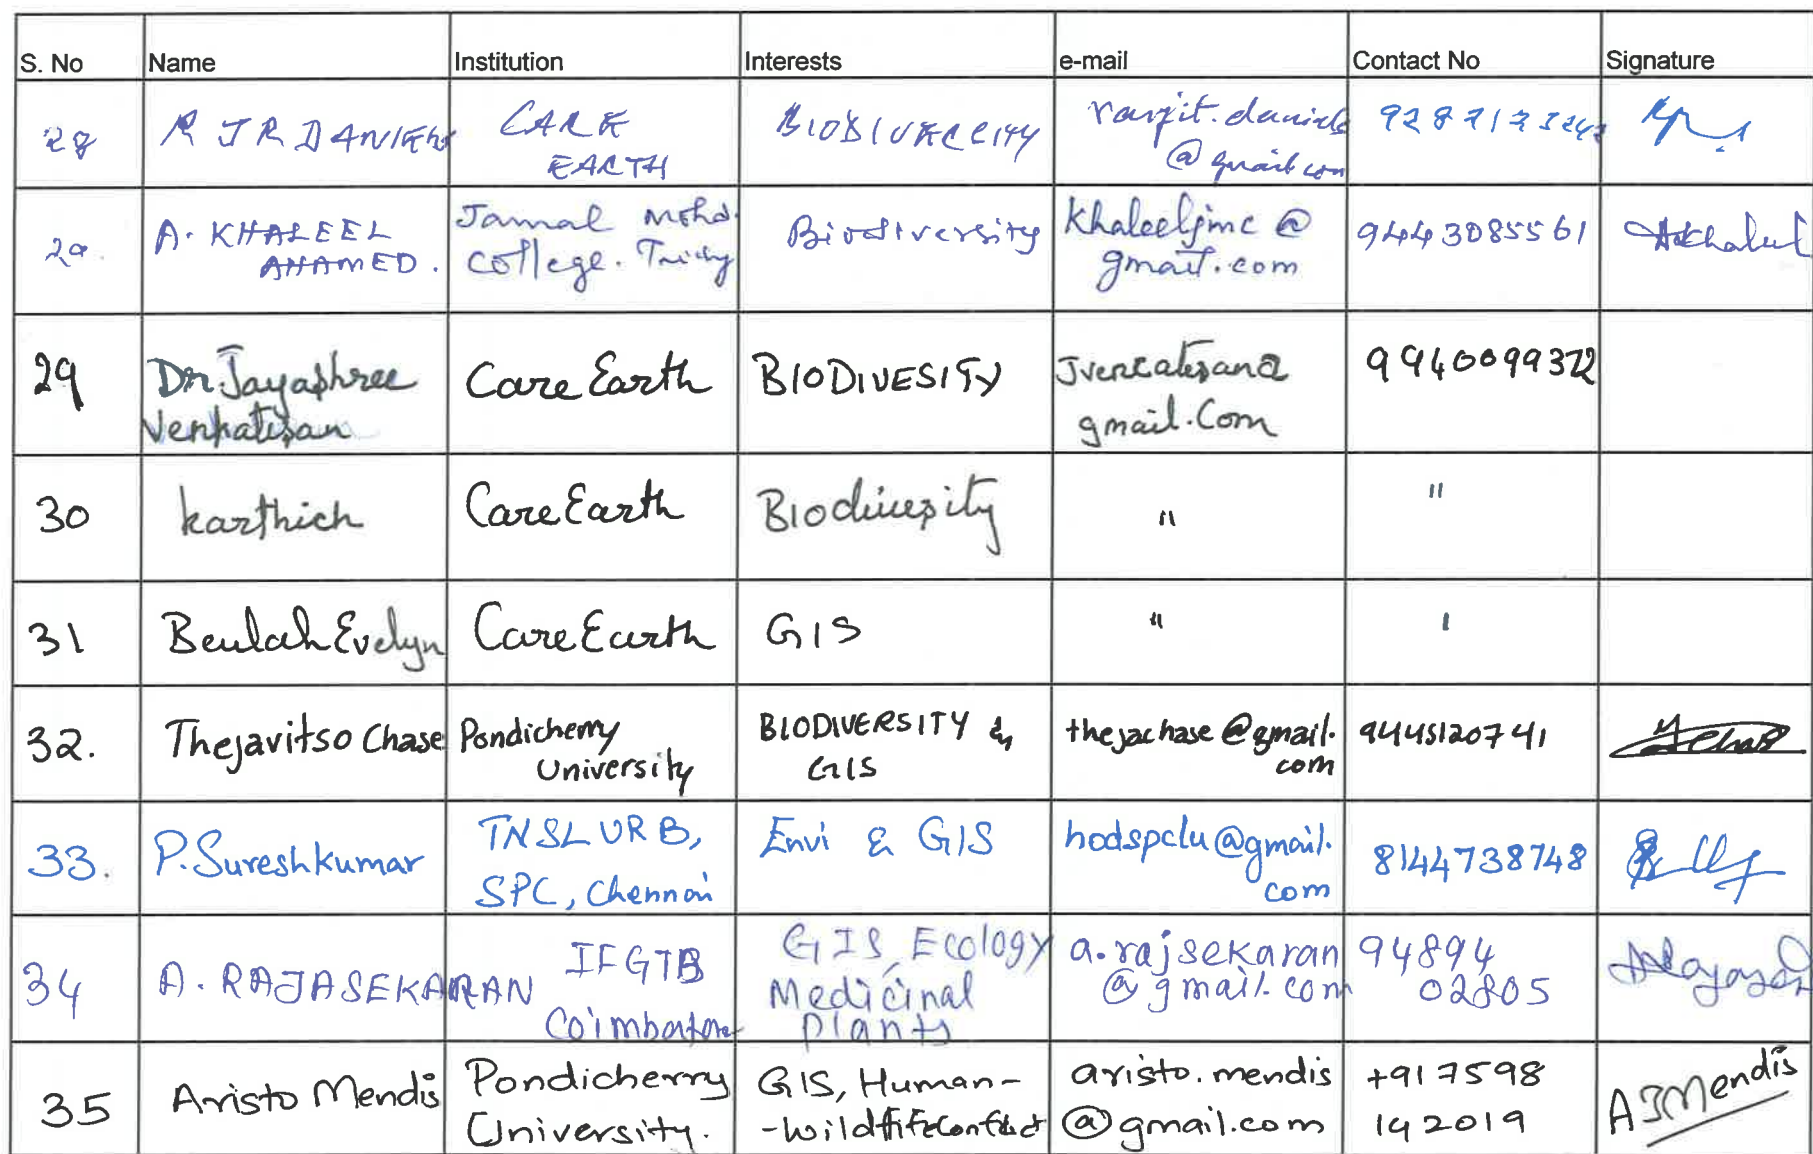 S. No Name Institution Interests e-mail Contact No Signature
28 R J R DANIELS CARE EARTH BIODIVERSITY ranjit.daniels@gmail.com
29. A. KHALEEL AHAMED. Jamal Mohd. College. Trichy Biodiversity Khaleeljmc@gmail.com 9443085561
29 Dr. Jayashree Venkatesan Care Earth BIODIVESITY Jvencatesan@gmail.Com 9940099322
30 karthich Care Earth Biodivesity " "
31 Beulah Evelyn Care Earth GIS " "
32. Thejavitso Chase Pondicherry University BIODIVERSITY & GIS thejachase@gmail.com 9445120741
33. P. Sureshkumar TNSLURB, SPC, Chennai Envi & GIS hodspclu@gmail.com 8144738748
34 A. RAJASEKARAN IFGTB Coimbatore GIS, Ecology Medicinal Plants a.rajsekaran@gmail.com 94894 02805
35 Aristo Mendis Pondicherry University. GIS, Human--wildlife Conflict aristo.mendis@gmail.com +91 7598 192019 A J Mendis